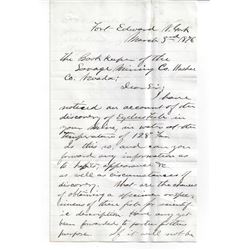 Fort Edward N. York
March 3rd 1876
the Book Keeper of the
Savage Mining Co. Washoe
Co. Nevada;
Dear Sir;
I have
noticed an account of the
discovery of Eyeless fish in
your Mine, in water at the
temperature of 128°
Is this so, and can you
forward any information as
to
as well as circumstances of
discovery. What are the chances
of obtaining a specimen or
of these fish for scientif-
ic description. Have any yet
been forwarded to parties for this
purpose. If it will not be